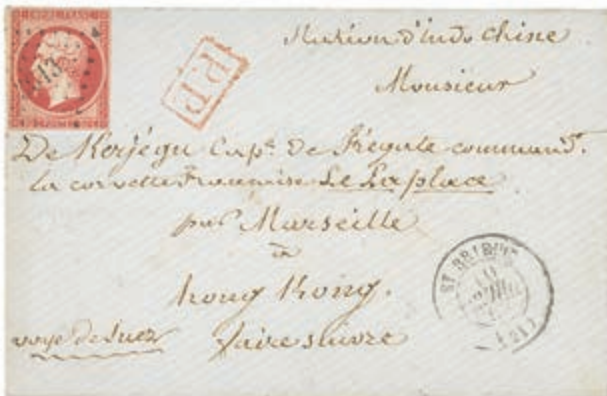 EMPIRE FRANC
P.P.
Station d'indo Chine
Monsieur
De Kerjégu Capne. De Frégate command.
la corvette Française Le Laplace
par Marseille
à
hong Kong.
voye de Suez faire suivre
ST BRIEUC
(21)